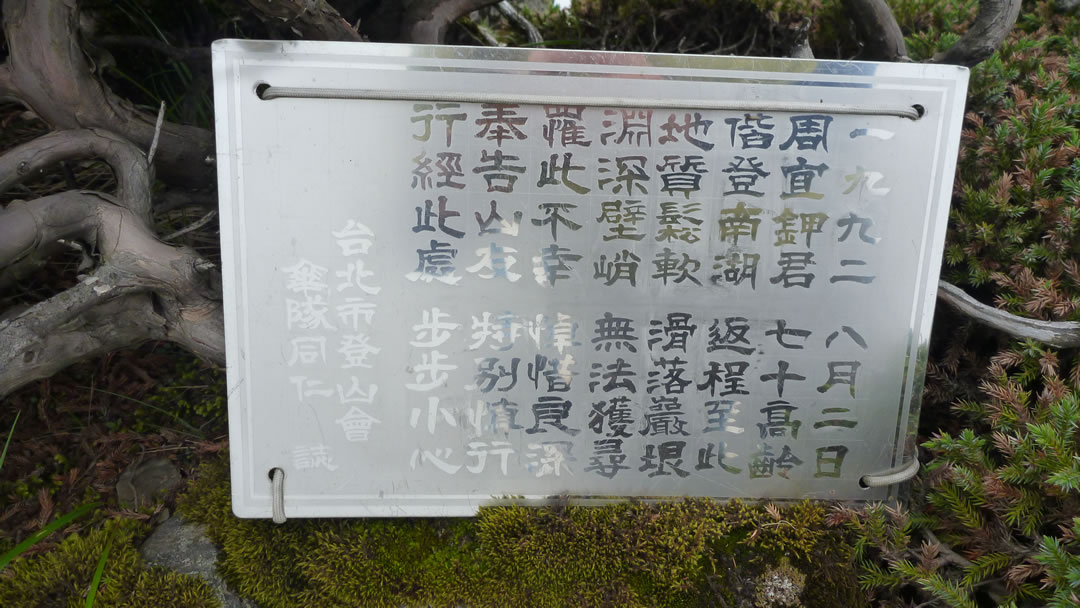 一九九二 八月二日
周宜鉀君 七十高齡
偕登南湖 返程至此
地質鬆軟 滑落巖垠
淵深壁峭 無法獲尋
罹此不幸 悼惜良深
奉告山友 特別慎行
行經此處 步步小心
台北市登山會
傘隊同仁 誌